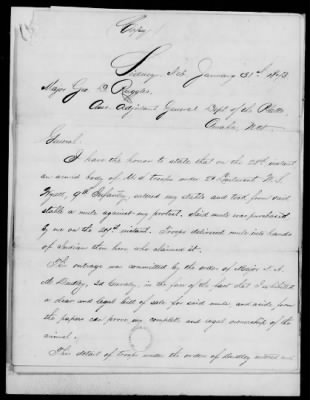 Copy
Sidney, Neb January 31st 1878
Major Geo. D. Ruggles,
Asst. Adjutant General Dept of the Platte,
Omaha, Neb.
General.
I have the honor to state that on the 28th instant
an armed body of U.S. troops under 2d Lieutenant W. L.
9th Infantry, entered my stable and took from said
stable a mule against my protest. Said mule was purchased
by me on the instant. Troops delivered mule into hands
of Indian then here who claimed it.
This outrage was committed by the order of Major N. A.
M. Dudley, 3d Cavalry, in the face of the fact that I exhibited
a clear and legal bill of sale for said mule, and aside from
the papers can prove my complete and legal ownership of the
animal.
This detail of troops under the orders of Dudley entered